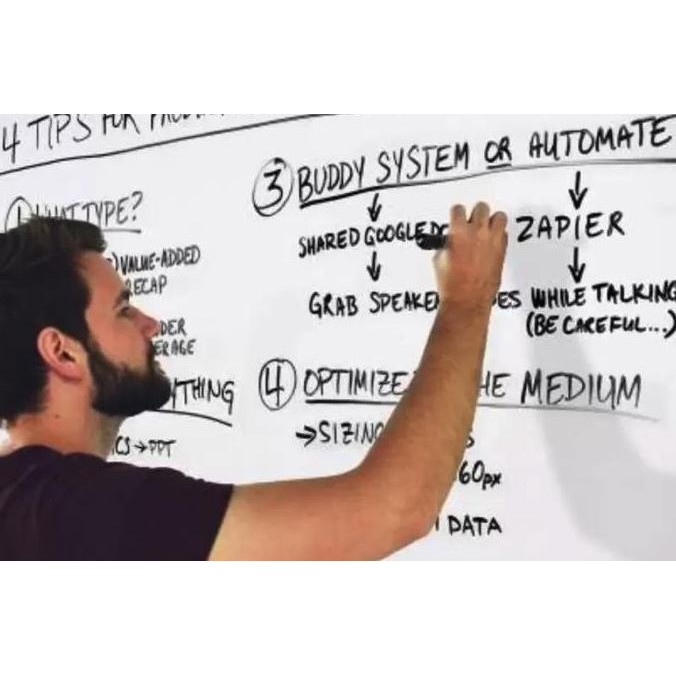 4 TIPS FOR
1 WHAT TYPE?
VALUE-ADDED
RECAP
3 BUDDY SYSTEM OR AUTOMATE
SHARED GOOGLE
ZAPIER
GRAB SPEAKER
WHILE TALKING
(BE CAREFUL...)
4 OPTIMIZE THE MEDIUM
→SIZING
60px
DATA
→PPT